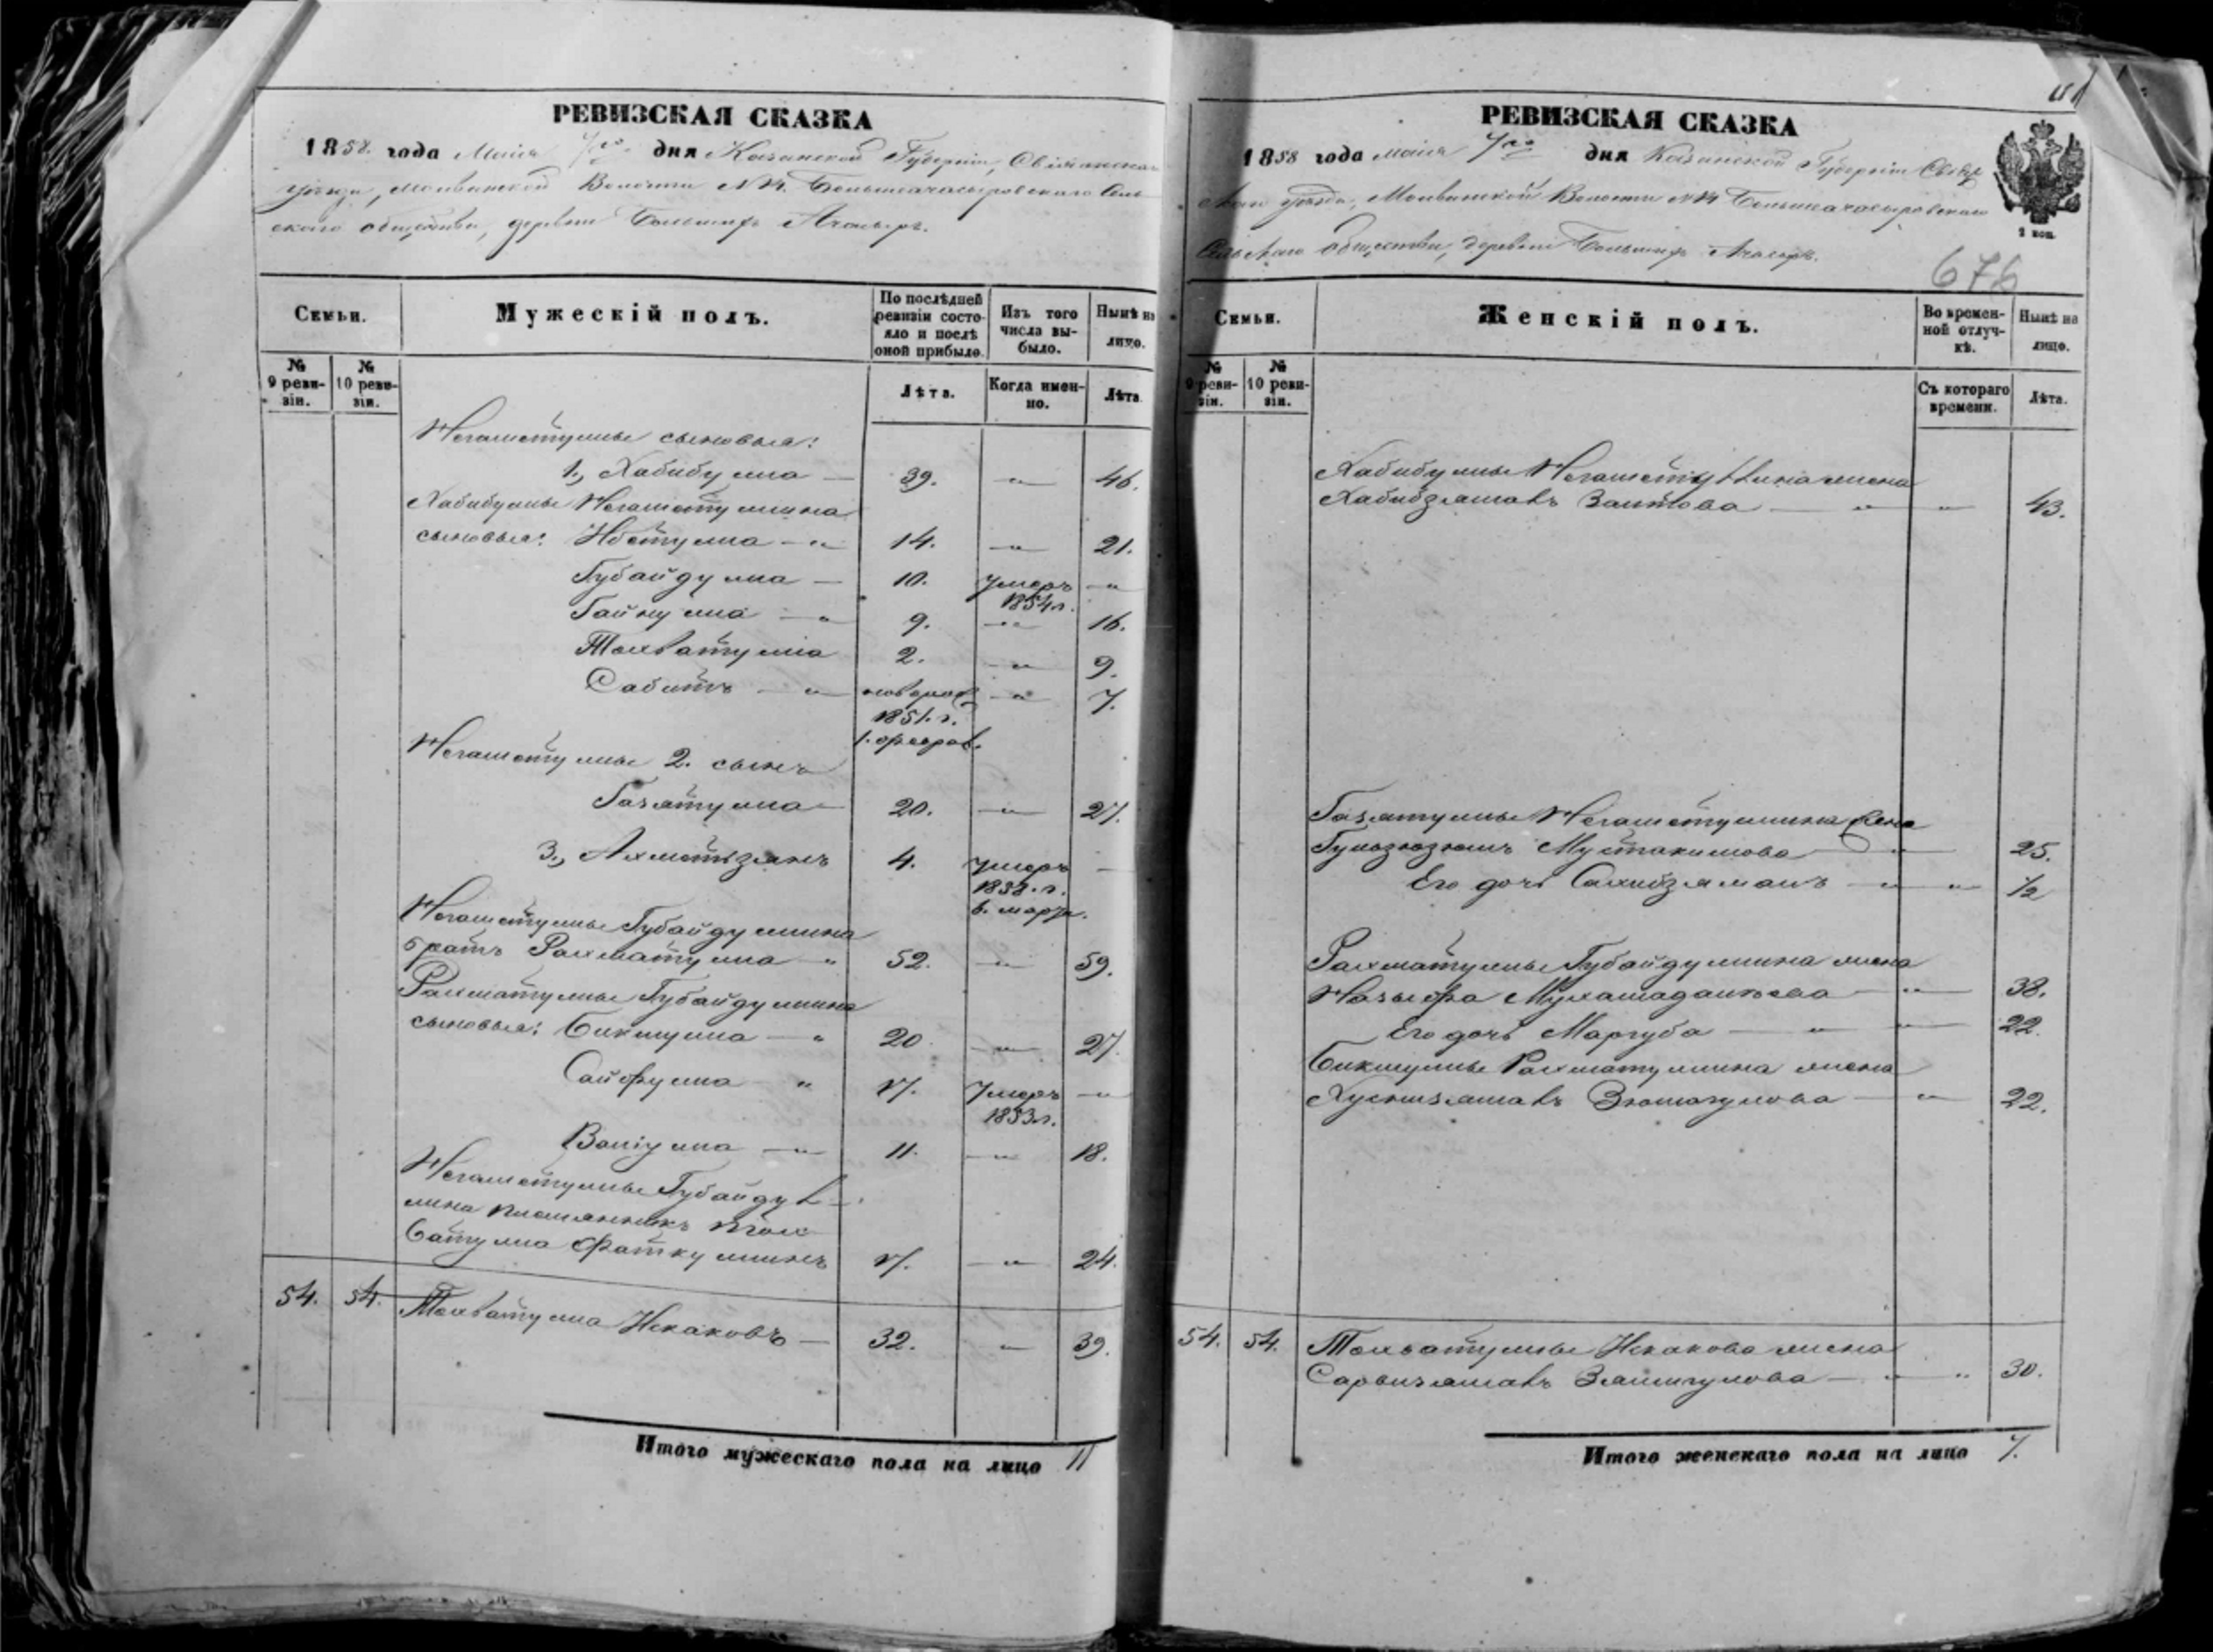 РЕВИЗСКАЯ СКАЗКА
1858 года Маія 7го дня Казанской Губерніи, Свіяжскаго
уѣзда, Молвинской Волости № 14. Большеачасыровскаго Сель
скаго общества, деревни Большихъ Ачасыръ.
Семьи.
Мужескій полъ.
По послѣдней ревизіи состояло и послѣ оной прибыло.
Изъ того числа выбыло.
Нынѣ на лицо.
№ 9 ревизіи.
№ 10 ревизіи.
Лѣта.
Когда именно.
Лѣта
Негаметуллы сыновья:
1., Хабибулла — 39. — " — 46.
Хабибуллы Негаметуллина
сыновья: Ибетулла — " 14. — " — 21.
Губайдулла — 10. умеръ 1854 г. — "
Гайнулла — " 9. — " — 16.
Тохватулла 2. — " 9.
Сабитъ — " новорож 1851. г. 1. феврал. — " 7.
Негаметуллы 2. сынъ
Газятулла — 20. — " — 27.
3., Ахметзянъ 4. умеръ 1858. г. 6. марта. —
Негаметуллы Губайдуллина
братъ Рахматулла " 52. — " — 59.
Рахматуллы Губайдуллина
сыновья: Бикмулла — " 20. — " — 27.
Сайфулла " 17. Умеръ 1853 г. — "
Валіулла — " 11. — " — 18.
Негаметуллы Губайдул-
лина племянникъ Тох
ватулла Фаткуллинъ 17. — " — 24.
54. 54. Тохватулла Искаковъ — 32. " 39.
Итого мужескаго пола на лицо 11
РЕВИЗСКАЯ СКАЗКА
1858 года маія 7го дня Казанской Губерніи Свіяж
скаго уѣзда, Молвинской Волости № 14 Большеачасыровскаго
Сельскаго общества, деревни Большихъ Ачасыръ.
2 коп.
676
Семьи.
Женскій полъ.
Во временной отлучкѣ.
Нынѣ на лицо.
№ 9 ревизіи.
№ 10 ревизіи.
Съ котораго времени.
Лѣта.
Хабибуллы Негаметуллина жена
Хабибзямалъ Заитова — " — " 43.
Газятуллы Негаметуллина жена
Гульзюзюмъ Мустакимова — " — 25.
Его дочь Сахибзямалъ — " — " 1/2
Рахматуллы Губайдуллина жена
Назыфа Мухамадіанѣева — " — 38.
Его дочь Маргуба — " — " 22.
Бикмуллы Рахматуллина жена
Хуснизямалъ Зюмагулова — " — 22.
54. 54. Тохватуллы Искакова жена
Сарвизямалъ Зямигулова — " " 30.
Итого женскаго пола на лицо 7.